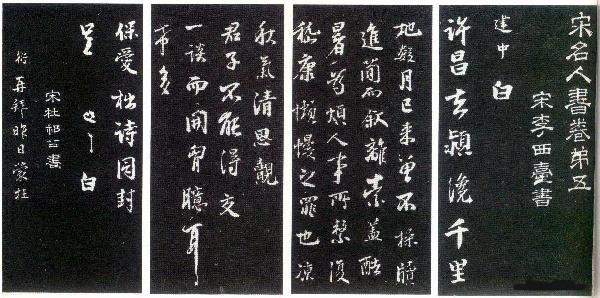 宋名人書卷第五
宋李西臺書
建中白
許昌去潁千里
地數月已來並不操牘
進簡而敘離索蓋酷
暑為煩人事所繫復
嵇康懶慢之罪也凉
秋氣清思觀
君子不能得交
一談而開胷臆耳
保愛拙詩同封
呈 白
宋杜祁公書
衍再拜昨日蒙枉